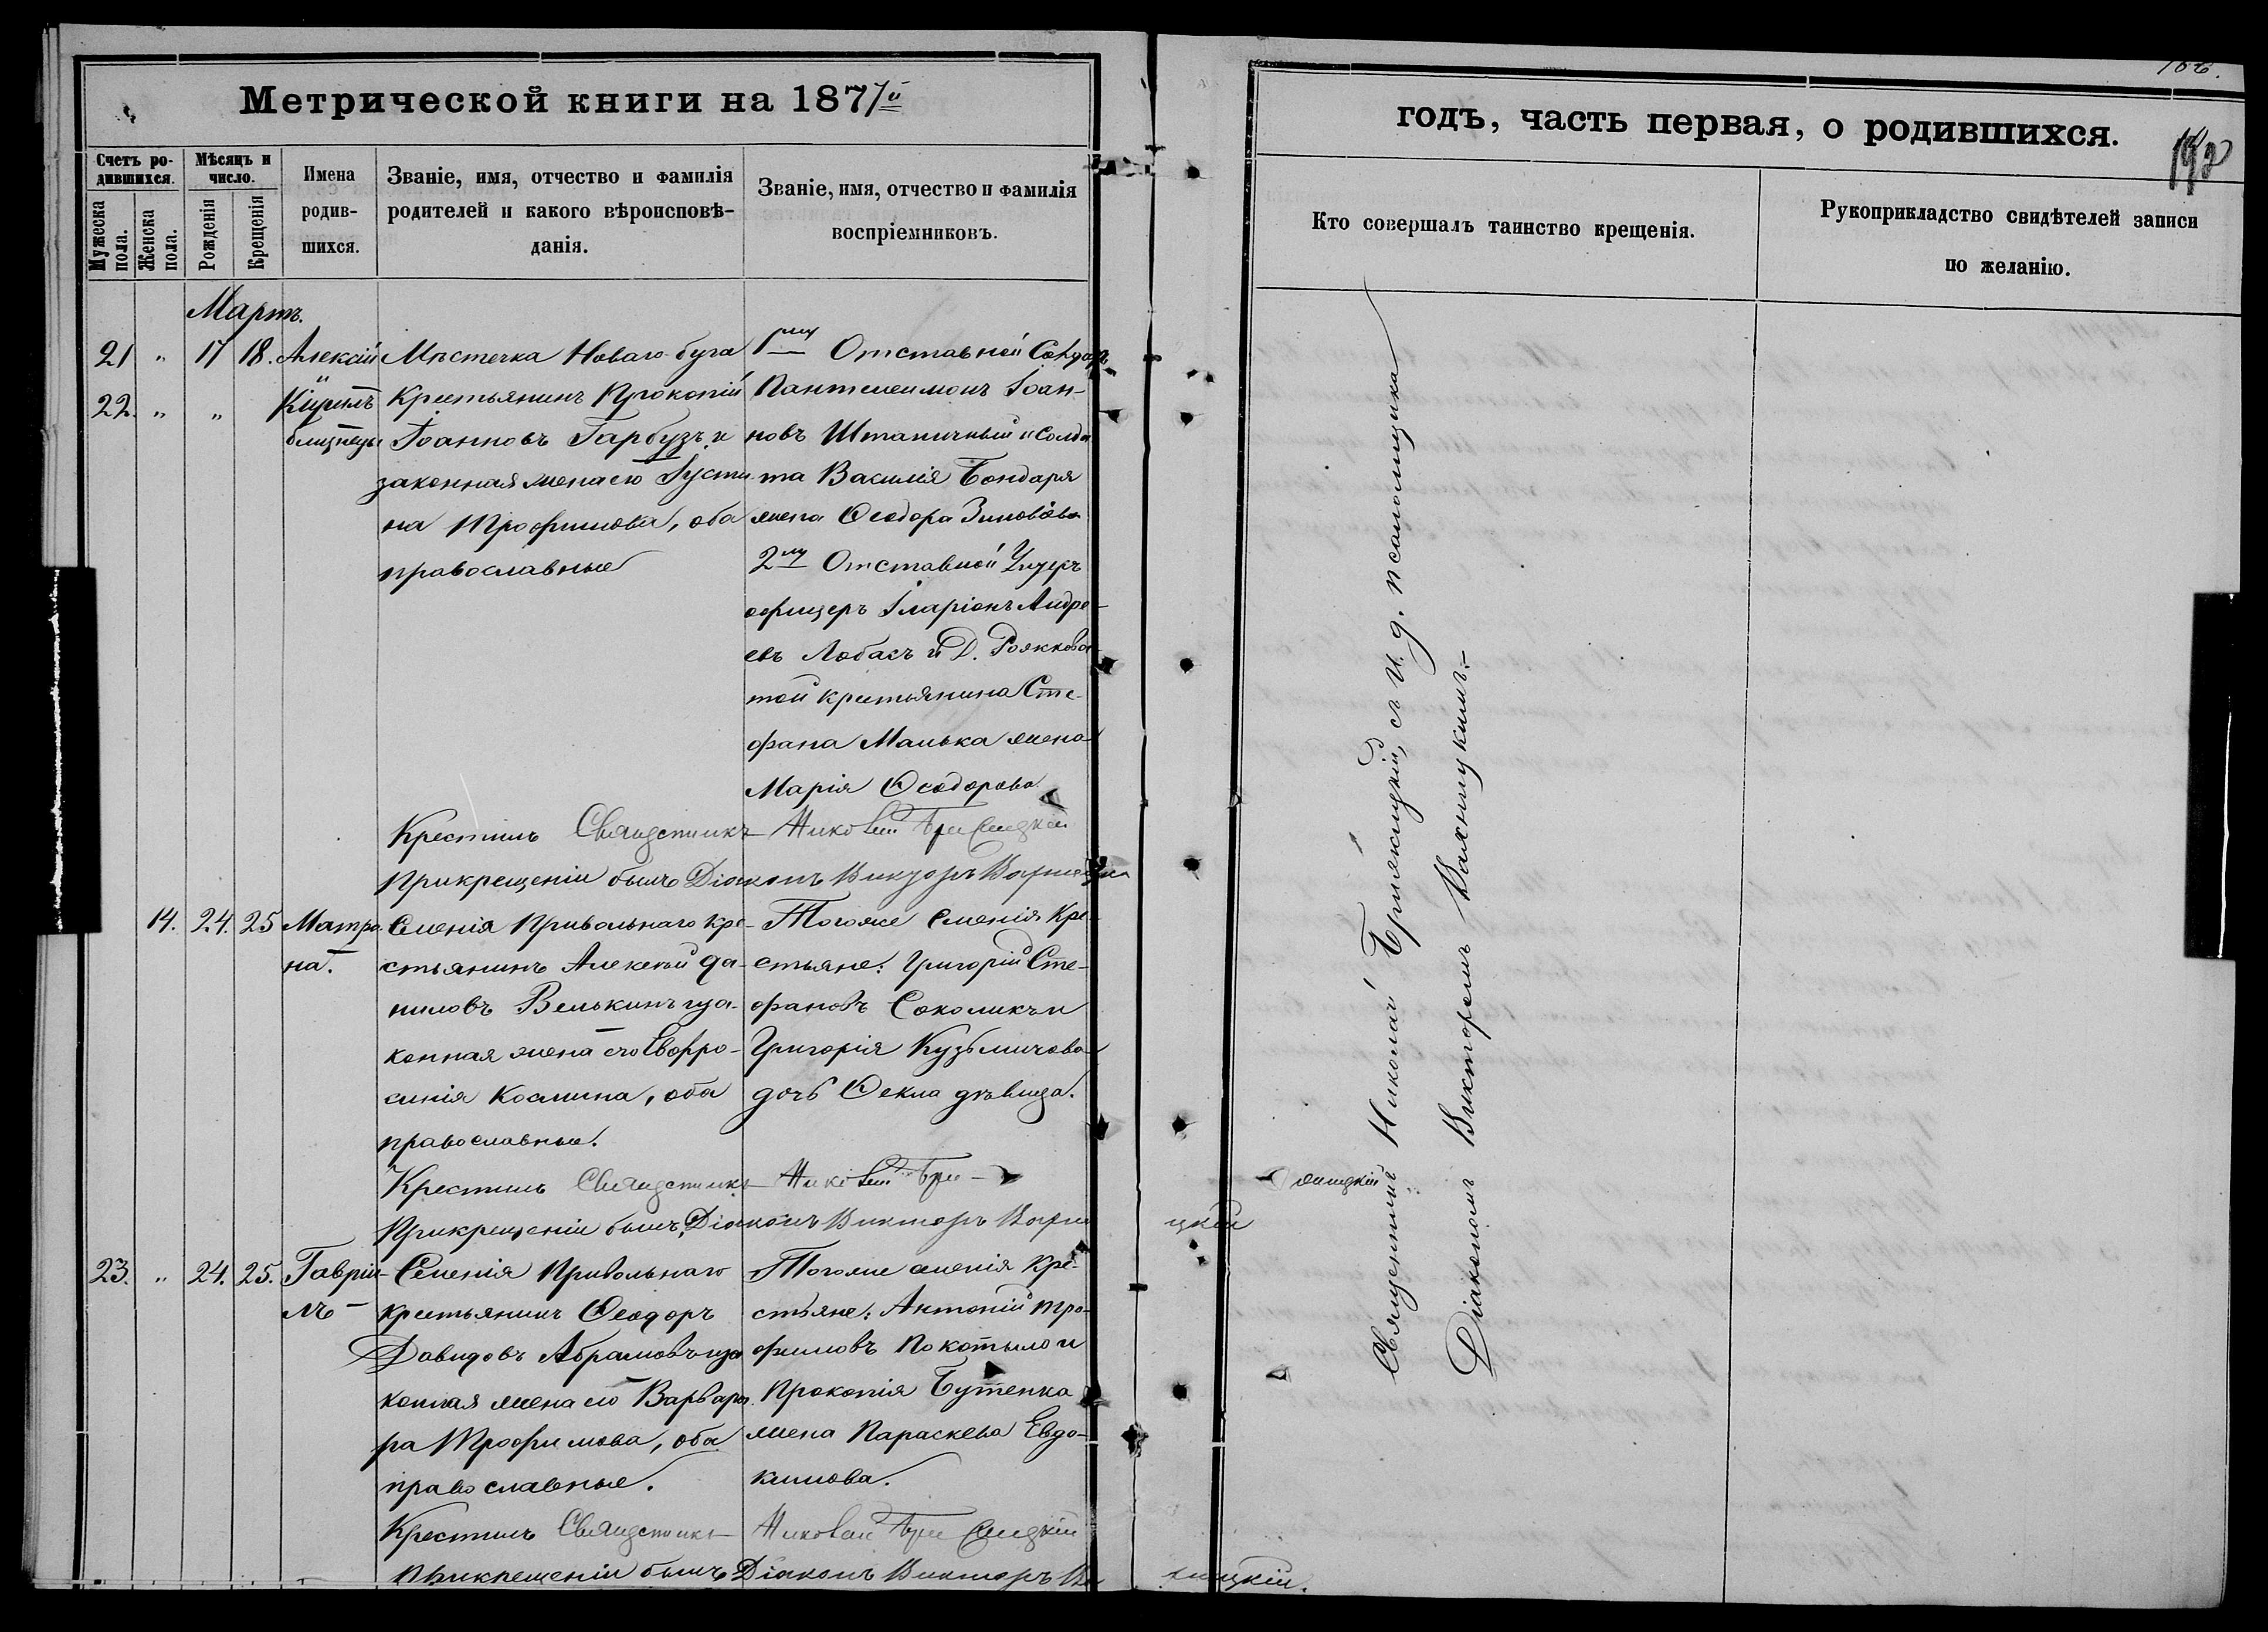 Метрической книги на 1877й
Счетъ ро-
дившихся.
Мѣсяцъ и
число.
Мужеска
пола.
Женска
пола.
Рожденія
Крещенія
Имена
родив-
шихся.
Званіе, имя, отчество и фамилія
родителей и какого вѣроисповѣ-
данія.
Званіе, имя, отчество и фамилія
воспріемниковъ.
Мартъ.
21 " 17 18. Алексій
22. " " Кирилъ
близнецы
Мѣстечка Новаго-буга
Крестьянинъ Прокопій
Іоанновъ Гарбузъ и
законная жена его Іусти-
на Трофимова, оба
православные
1му Отставной Солдатъ
Пантелеимонъ Іоан-
новъ и Солда-
та Василія Бондаря
жена Ѳеодора Зиновіева
2му Отставной Унтеръ
офицеръ Иларіонъ Андре-
евъ Лобасъ и Д.
той крестьянина Сте-
фана Манька жена
Марія Ѳеодорова
Крестилъ Священникъ Николай
При крещеніи былъ Діаконъ Викторъ
14. 24. 25 Матро-
на.
Селенія Привольнаго кре-
стьянинъ Алексѣй Да-
ниловъ Велькинъ и за-
конная жена его Евфро-
синія Космина, оба
православные.
Тогоже селенія Кре-
стьяне: Григорій Сте-
фановъ Соколикъ и
Григорія Кузьмичова
дочь Ѳекла дѣвица.
Крестилъ Священникъ Николай
При крещеніи былъ Діаконъ Викторъ
23. " 24. 25. Гаврі-
илъ
Селенія Привольнаго
крестьянинъ Ѳеодоръ
Давидовъ Абрамовъ и за-
конная жена его Варва-
ра Трофимова, оба
православные.
Тогоже селенія Кре-
стьяне: Антоній Тро-
фимовъ Покотыло и
Прокопія Бутенка
жена Параскева Евдо-
кимова.
Крестилъ Священникъ Николай
При крещеніи былъ Діаконъ Викторъ
годъ, часть первая, о родившихся.
Кто совершалъ таинство крещенія.
Рукоприкладство свидѣтелей записи
по желанію.
Священникъ Николай с и. д. псаломщика
Діакономъ Викторомъ